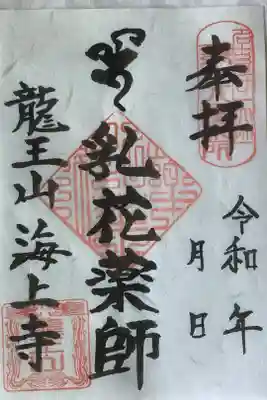 奉拝
令和 年
月 日
乳花薬師
龍王山 海上寺